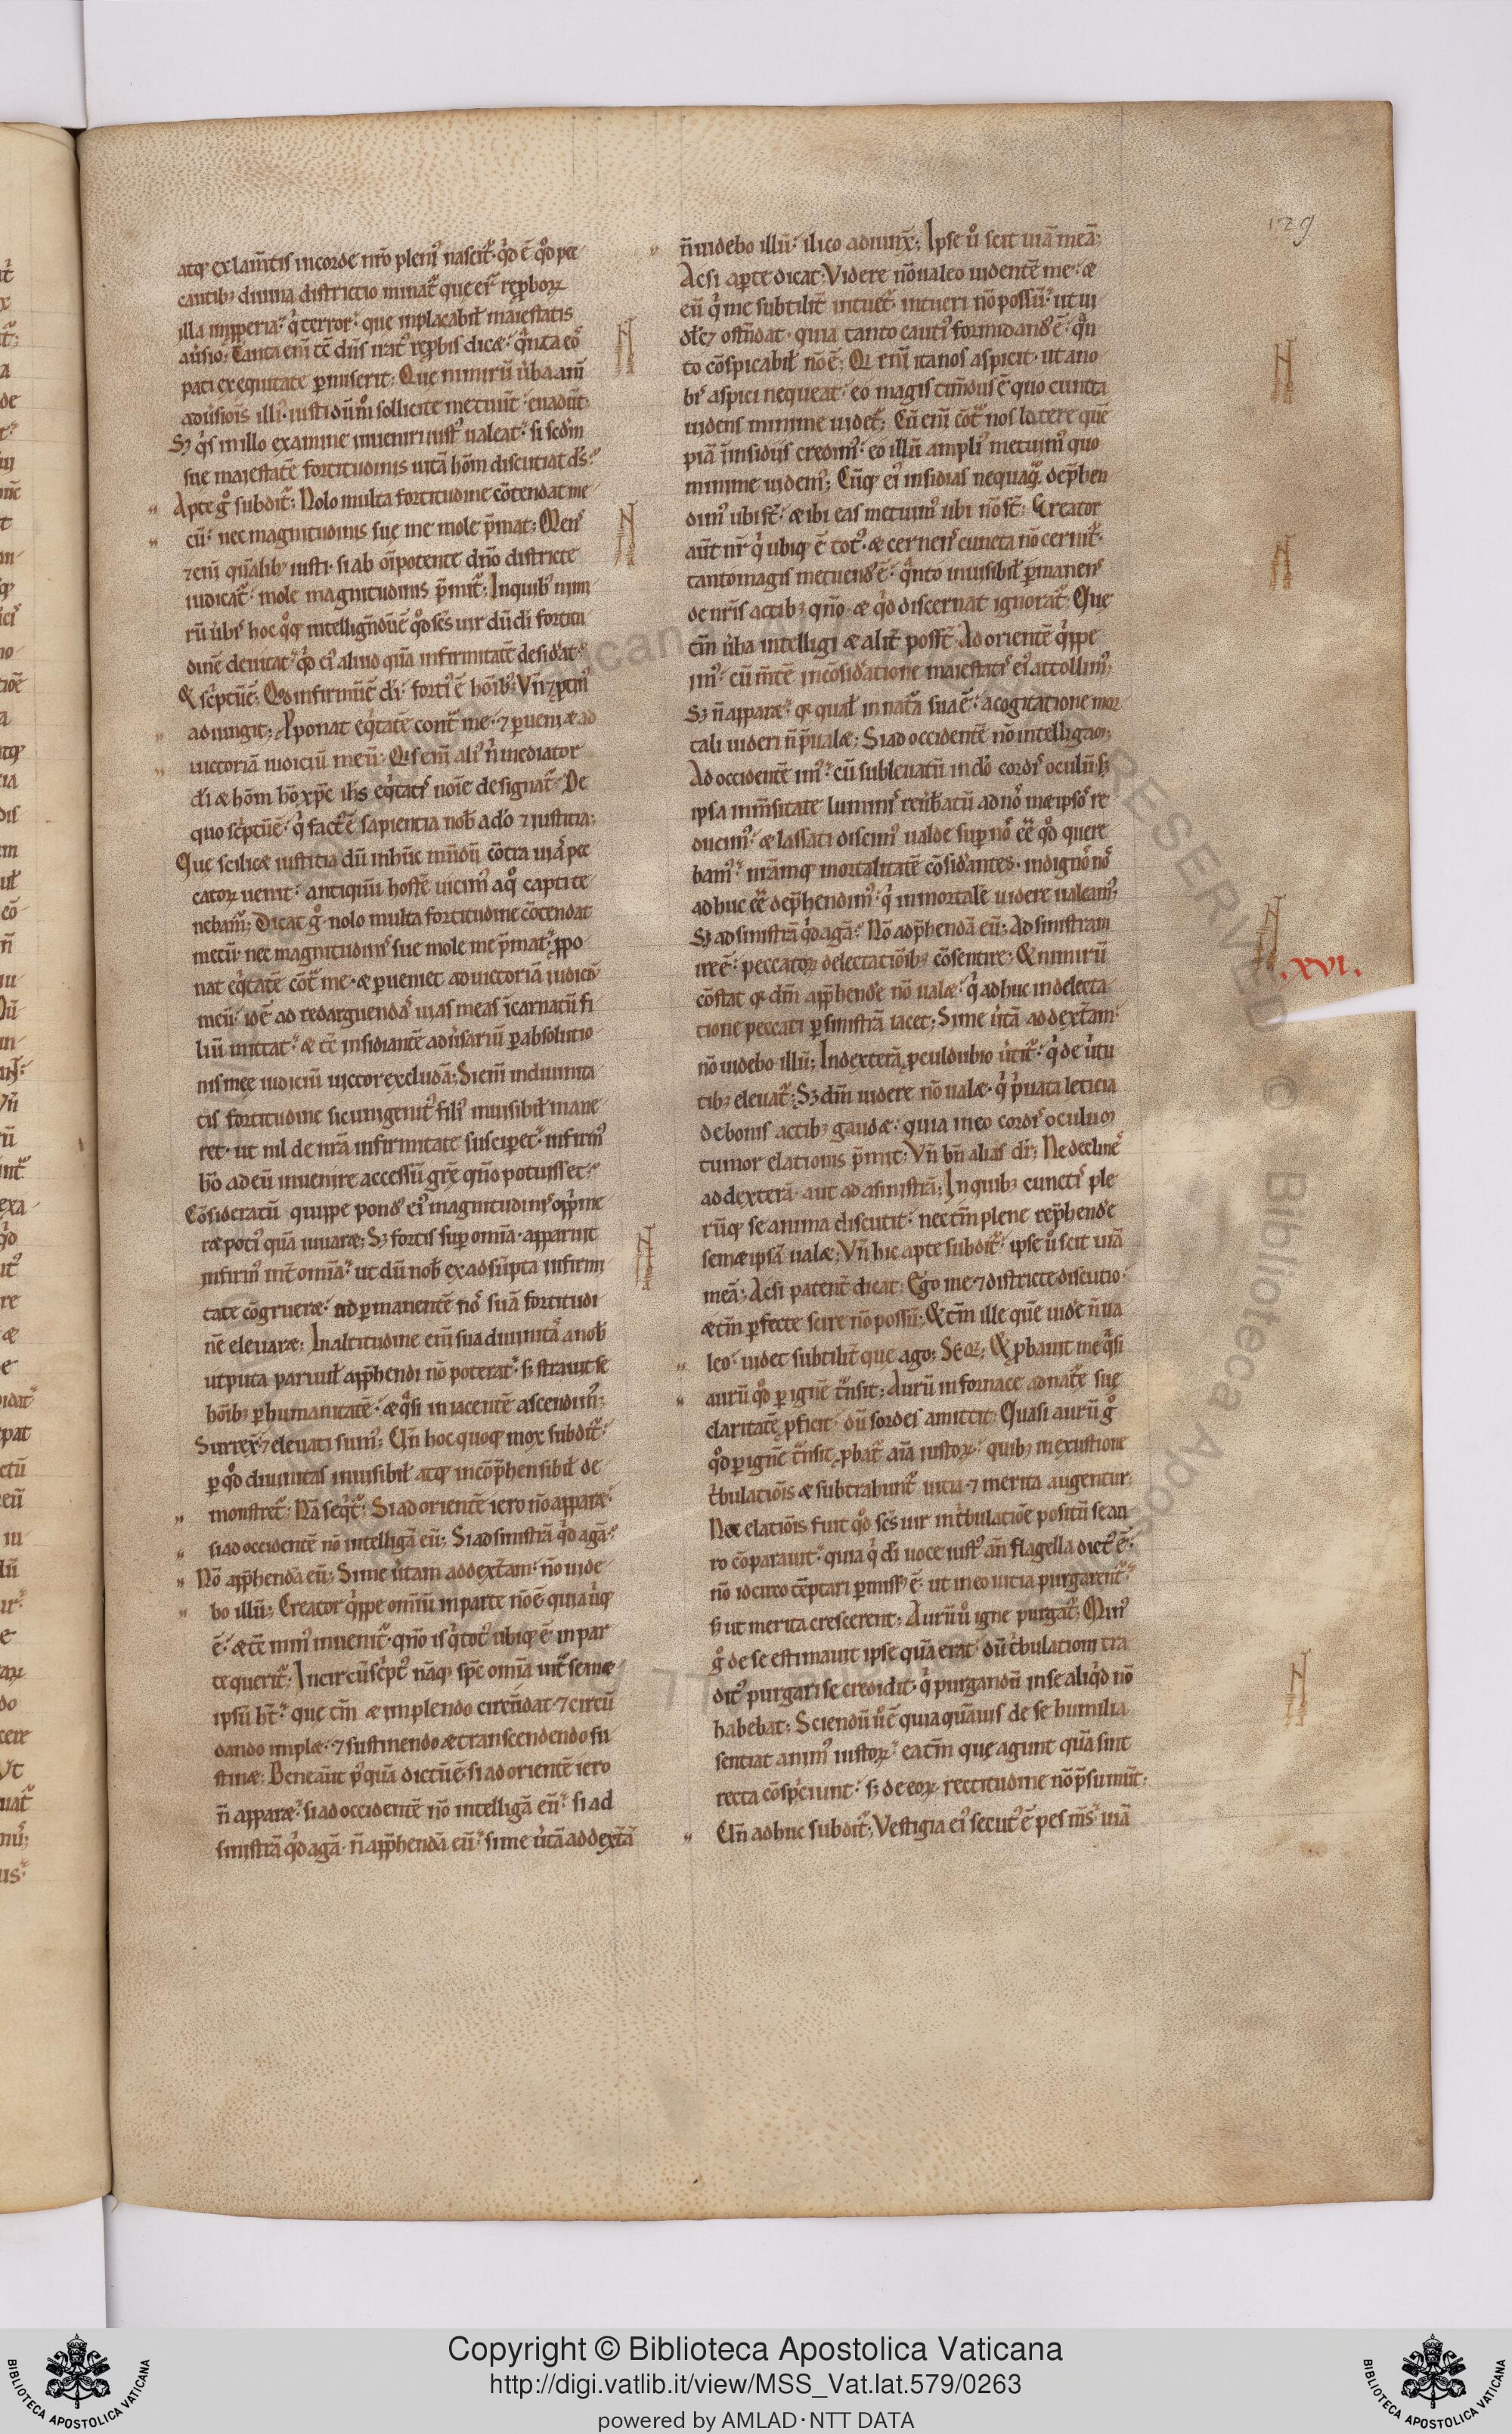 129
atq; ex lam̃tis in corde nr̃o pleni᷒ nascit᷑. qͥd ē qͦd pec
cantib; diuina districtio minat᷑ que eiͬ reꝓboꝝ
illa mͥsperia᷑ qͥ terror᷑ que inplacabił maiestatis
aũsio; Tanta eni᷑ tē dñs nat᷑ reꝓbis dicæ᷑ qͣnta eoͬ
pati ex equitate ꝑmiserit; Que nimirū ũba aĩ
aduͥsiōis illi᷒ iusti dūm̊ sollicite metuūt᷑ euadūt;
Sꝫ qͥs in illo examine inueniri iust᷒ ualeat᷑ si scd̃m
sue maiestatē fortitudinis uitā hōm̄ discutiat ds̃᷑
Apte g̊ subdit᷑; Nolo multa fortitudine cōtendat me
cū᷑ nec magnitudinis suę me mole p̃mat; Mens᷒
⁊enĩ qũalib; iusti᷑ si ab oĩpotente dño districte
iudicat᷑ mole magnitudinis p̃mit᷑; In quib᷒ nimi
rū ũbis hoc qͦq; intelligñdū ē qͦd scs̃ uir dū dĩ fortitu
dinē deuitat᷑ qͥd ei᷒ aliud qũa infirmitatē desid̾at᷑
& sc̾ptū ē; Qd̾ infirmū ē dĩ᷑ forti᷒ ē hōib᷒; Vn̄ ⁊ ꝓtin᷒
adiungit; Aponat eqͥtatē cont᷑ me᷑ ⁊ ꝑueniæ ad
uictoriā iudiciū meū; Qis enĩ ali᷒ nͥ mediator
dĩ æ hōm̄ hō xp̄c ih̄s eqͥtatis᷒ noīe designat᷑᷑ De
quo sc̾ptū ē᷑ qͥ fact᷒ ē sapientia nob̃ a dõ ⁊ iustitia;
Que scilicæ iustitia dū in hūc mūdū cōtra uiā pec
catoꝝ uenit᷑ antiquū hostē uicim᷒ a qͦ capti te
nebam᷑; Dicat g̊ nolo multa fortitudine cōtendat
mecū᷑ nec magnitudinis᷒ sue mole me p̃mat᷑ ꝓpo
nat eqͥtatē cōt᷑ me᷑ æ ꝑueniet ad uictoriā iudiciū
meū᷑ idē ad redarguendas᷒ uias meas ĩcarnatū fi
liū mittat᷑ æ tē insidiantē adũsariū ꝑ absolutio
nis mee iudiciū uictor excludā; Si enĩ in diuinita
tis fortitudine sic unigenit᷒ fili᷒ inuisibił mane
ret᷑ ut nil de nr̃a infirmitate susciꝑet᷑ infirm᷒
hō ad eū inuenire accessū gr̃ę qñō potuisset᷑
Cōsideratū quippe pond᷒ ei᷒ magnitudinis᷒ opp̃me
ræ poti᷒ qũā iuuaræ; Sꝫ fortis suꝑ omĩa᷑ apparuit
infirm᷒ int̃ omĩa᷑ ut dū nob̃ ex adsũpta infirmi
tate cōgrueræ᷑ ad ꝑmanentē noͬ suā fortitudi
nē eleuaræ; In altitudine enĩ sua diuinitas᷒ a nob̃
utputa paruulł app̃hendi nō poterat᷑ sꝫ strauit se
hōib; ꝑ humanitatē᷑ æ qͣsi in iacentē ascendim᷒;
Surrex̄᷑ ⁊ eleuati sum᷒; Un̄ hoc quoq; mox subdit᷑᷑
ꝑ qͦd diuinitas inuisibił atq; incōp̃hensibił de
monstret᷑; Nā seqͥt᷑; Si ad orientē iero nō apparæ᷑
si ad occidentē nō intelligā eū; Si ad sinistrā qͥd agā᷑
Nō app̃hendā eū; Si me ũtam ad dext̃am᷑ nō uide
bo illū; Creator qͥppe omĩū in parte nō ē᷑ quia ubͥq;
ē᷑ & tē min᷒ inuenit᷑ qñō is qͥ tot᷒ ubiq; ē in par
te querit᷑; Incircūsc̾pt᷒ nāq; sp̄c omĩa int̃ semæ
ipsū ht̃᷑ que tm̄ æ implendo circūdat᷑ ⁊ circū
dando implæ᷑ ⁊ sustinendo æ transcendendo su
stinæ; Bene aūt p᷒ quā dictū ē᷑ si ad orientē iero
ñ apparæ᷑ si ad occidentē nō intelligā eū᷑ si ad
sinistrā qͥd agā᷑ ñ app̃hendā eū᷑ si me ũtā ad dext̃ā
ñ uidebo illū᷑ ilico adiunx̄; Ipse ů scit uiā meā;
Ac si aꝑte dicat; Videre nō ualeo uidentē me᷑ æ
eū qͥ me subtilit̃ intuet᷑ intueri nō possū᷑ ut ui
dełꝫ ostñdat᷑ quia tanto cauti᷒ formidand᷒ ē᷑ qͣn
to cōspicabił nō ē; Qi enĩ ita nos aspicit᷑ ut a no
bis᷒ aspici nequeat᷑ eo magis tim̃dus ē quo cuncta
uidens minime uidet᷑; Cū enĩ cōt᷑ nos latere quē
piā ĩ insidiis credim᷒᷑ eo illū ampli᷒ metuim᷒ quo
minime uidem᷒; Cūq; ei᷒ insidias nequaqͣ dep̃hen
dim᷒ ubi st̃᷑ æ ibi eas metuim᷒ ubi nō st̃; Creator
aūt nr̃ qͥ ubiq; ē tot᷒᷑ æ cernens᷒ cuncta nō cernit᷑᷑
tanto magis metuend᷒ ē᷑ qͣnto inuisibił ꝑmanens᷒
de nr̃is actib; qñō᷑ æ qͥd discernat ignorat᷑; Que
tm̄ ũba intelligi æ alit̃ posst̃; Ad orientē qͥppe
im᷒᷑ cū m̃tē in cōsid̾atione maiestatis᷒ ei᷒ attollim᷒;
Sꝫ ñ apparæ᷑ qꝛ qual᷑ in nat᷑a sua ē᷑ a cogitatione mor
tali uideri ñ p̃ualæ; Si ad occidentē nō intelligam;
Ad occidentē im᷒᷑ cū subleuatū in dõ cordis᷒ oculū sꝫ
ipsa inm̃sitate luminis᷒ reũb̃atū ad noͬ mæipsoͬ re
ducim᷒᷑ æ lassati discim᷒ ualde suꝑ noͬ ee᷑ qͦd quere
bam᷒᷑ nr̃amq; mortalitatē cōsid̾antes᷑ indignoͬ noͬ
adhuc ee᷑ dep̃hendim᷒᷑ qͥ inmortalē uidere ualeam᷒;
Sꝫ ad sinistrā qͥd agā᷑ Nō adp̃hendā eū; Ad sinistram
ire ē᷑ peccatoꝝ delectatiōib; cōsentire; & nimirū
cōstat qꝛ dm̄ app̃hend̾e nō ualæ᷑ qͥ adhuc in delecta
tione peccati ꝑ sinistrā iacet; Si me ũtā ad dext̃am᷑
nō uidebo illū; In dexterā ꝓculdubio ũtit᷑᷑ qͥ de uͥtu
tib; eleuat᷑; Sꝫ dm̄ uidere nō ualæ᷑ qͥ pͥuata leticia
de bonis actib; gaudæ᷑ quia in eo cordis᷒ oculum
tumor elationis p̃mit; Vn̄ bñ alias dr̃; Ne declines᷒
ad dexterā᷑ aut ad a sinistrā; In quib; cunctis᷒ ple
rūq; se anima discutit᷑ nec tm̄ plene rep̃hend̾e
semæipsā ualæ; Vn̄ hic apte subdit᷑᷑ ipse ů scit uiā
meā; Ac si patent̃ dicat; Ego me ⁊ districte discutio᷑
æ tm̄ ꝑfecte scire nō possū; & tm̄ ille quē uid̾e ñ ua
leo᷑ uidet subtilit̃ que ago; Seqͥ; & ꝓbauit me qͣsi
aurū qͦd ꝑ ignē t᷑nsit; Aurū in fornace ad nat᷑e suę
claritatē ꝓficit᷑ dū sordes amittit; Quasi aurū g̊
qͦd ꝑ ignē t᷑nsit ꝓbat᷑ aĩa iustoꝝ᷑ quib; in exustione
tͥbulatiōis æ subtrahunt᷑ uitia ⁊ merita augentur;
Nec elatiōis fuit qͦd scs̃ uir in tͥbulatiōe positū se au
ro cōparauit᷑ quia qͥ dĩ uoce iust᷒ añ flagella dict᷒ ē᷑
nō idcirco tēptari ꝑmiss᷒ ē᷑ ut in eo uitia purgarent᷑᷑
sꝫ ut merita crescerent; Aurū ů igne purgat᷑; Min᷒
g̊ de se estimauit ipse qũā erat᷑ dū tͥbulationi tra
dit᷒ purgari se credidit᷑ qͥ purgandū in se aliqͥd nō
habebat; Sciendū ů ē quia quāuis de se humilia
sentiat anim᷒ iustoꝝ᷑ ea tm̄ que agunt quā sint
recta cōsp̾ciunt᷑ sꝫ de eoꝝ rectitudine nō p̃sumūt;
Un̄ adhuc subdit᷑; Vestigia ei᷒ secut᷒ ē pes m̃s᷑ uiā
.XVI.
Copyright © Biblioteca Apostolica Vaticana
http://digi.vatlib.it/view/MSS_Vat.lat.579/0263
powered by AMLAD·NTT DATA
BIBLIOTECA APOSTOLICA VATICANA
BIBLIOTECA APOSTOLICA VATICANA